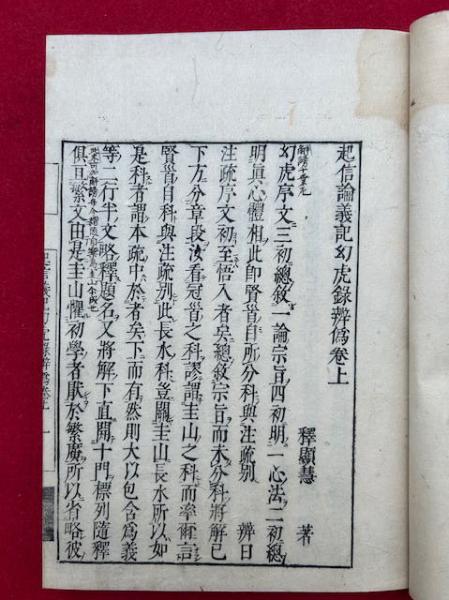 起信論義記幻虎錄辨偽卷上
釋顯慧 著
幻虎序文三初總敘一論宗旨四初明一心法二初總
明眞心體相此卽賢首自所分科與注疏別 辨曰
注疏序文初至悟入者矣總敘宗旨而未分科將解已
下方分章段汝看冠首之科謬謂圭山之科而率爾言
賢首自科與注疏別此長水科豈關圭山長水所以如
是科者謂本疏中於者矣下而有然則大以包含爲義
等二行半文略釋題名又將解下直開十門標列隨釋
俱且繁文由是圭山懼初學者猒於繁廣所以省略彼